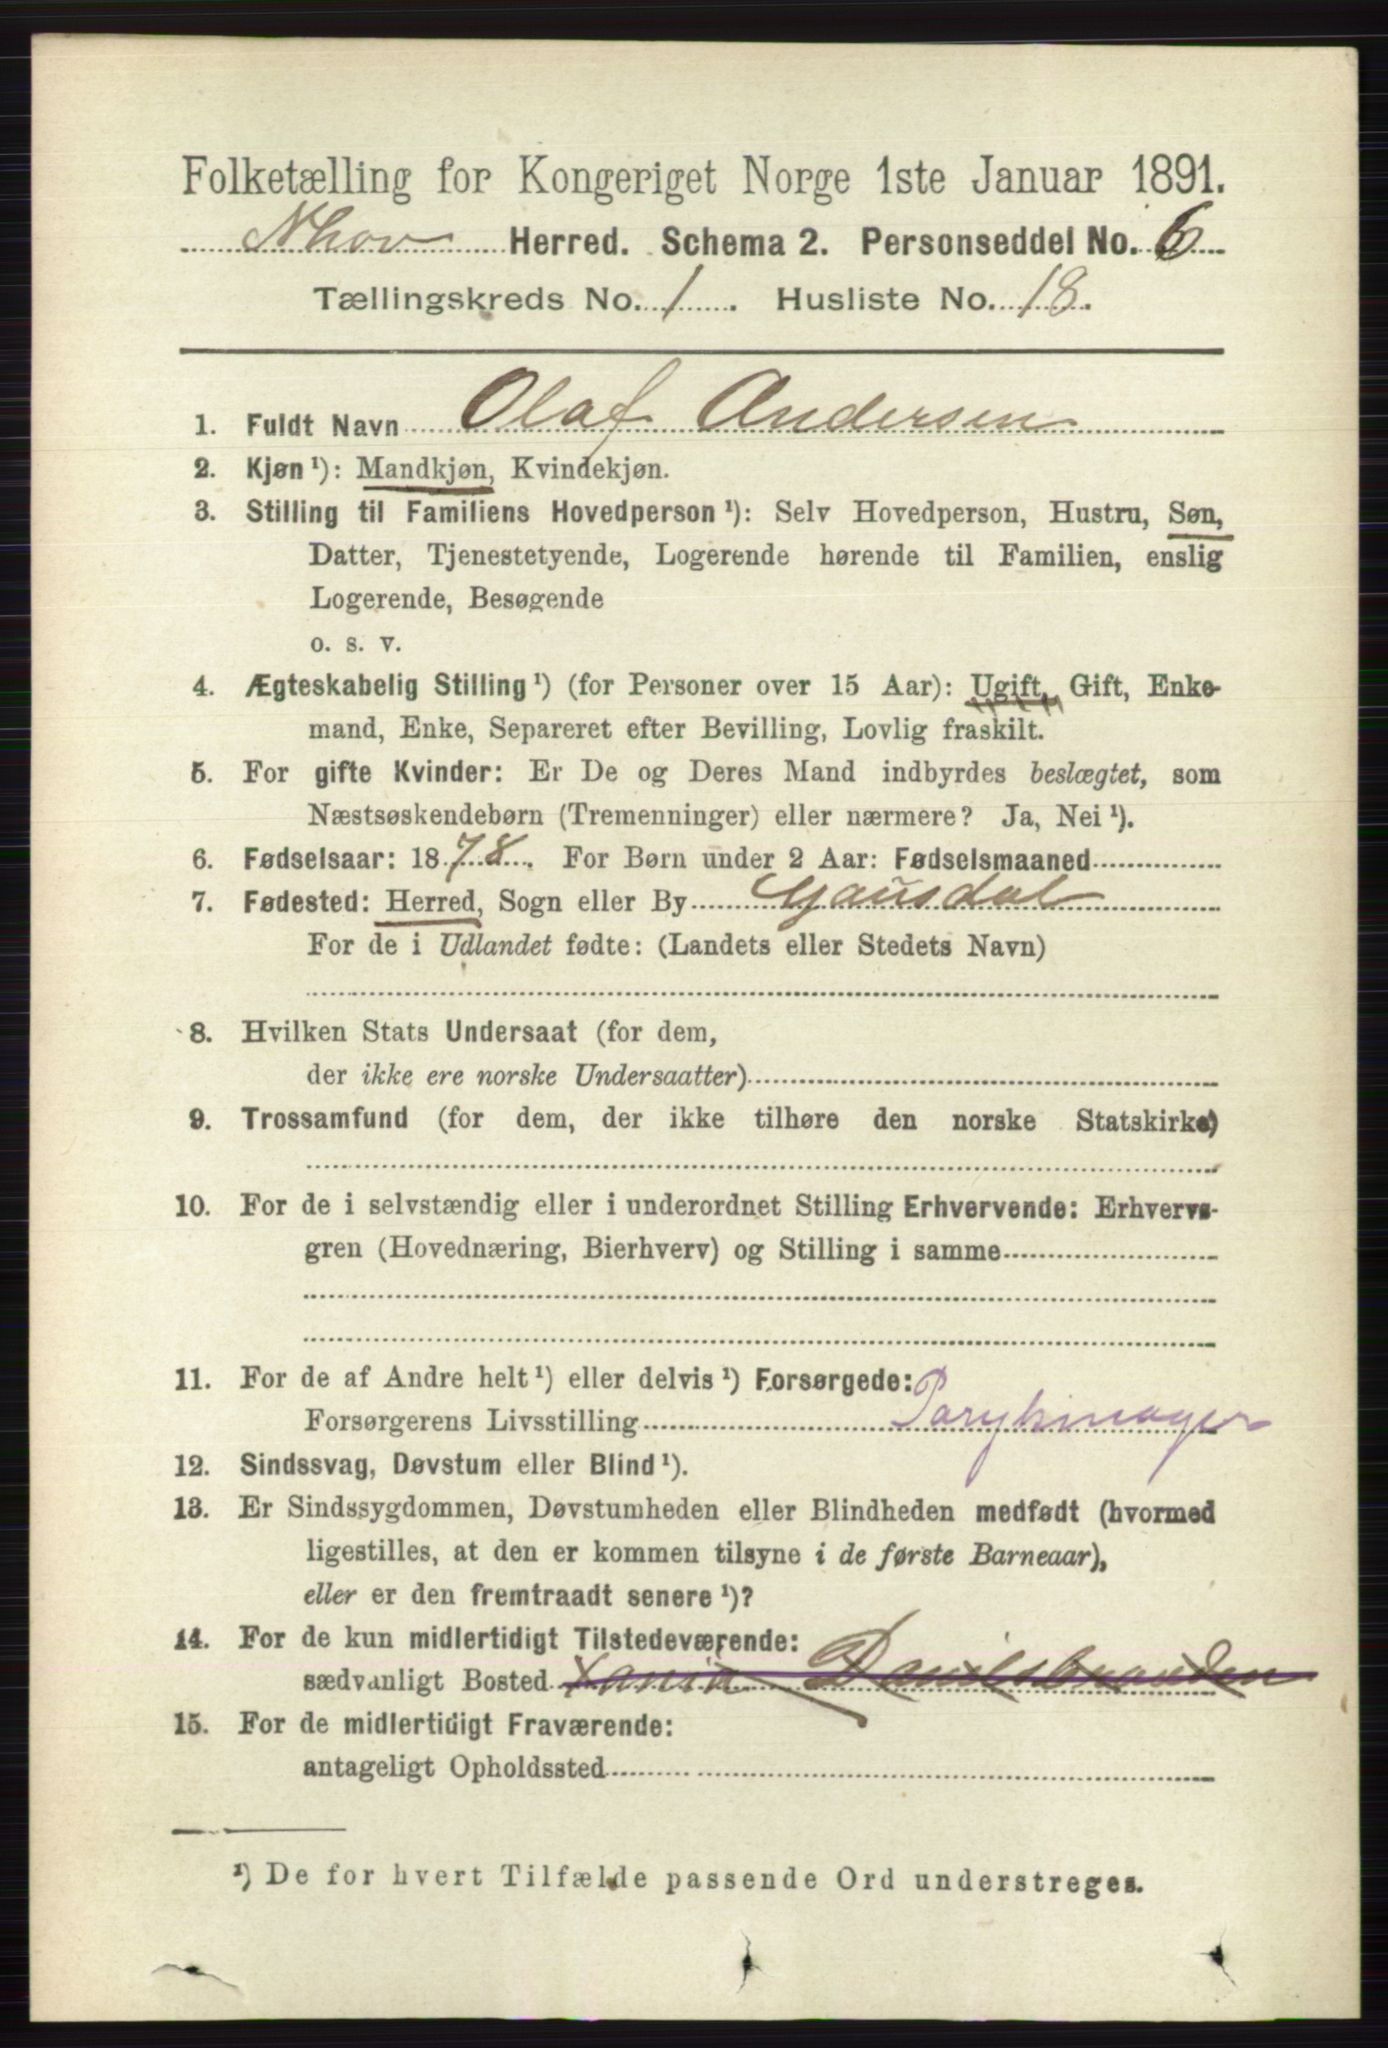 Folketælling for Kongeriget Norge 1ste Januar 1891.
Herred. Schema 2. Personseddel No. 6
Tællingskreds No. 1. Husliste No. 18.
1. Fuldt Navn Olaf Andersen
2. Kjøn ¹): Mandkjøn, Kvindekjøn.
3. Stilling til Familiens Hovedperson ¹): Selv Hovedperson, Hustru, Søn,
Datter, Tjenestetyende, Logerende hørende til Familien, enslig
Logerende, Besøgende
o. s. v.
4. Ægteskabelig Stilling ¹) (for Personer over 15 Aar): Ugift, Gift, Enke-
mand, Enke, Separeret efter Bevilling, Lovlig fraskilt.
5. For gifte Kvinder: Er De og Deres Mand indbyrdes beslægtet, som
Næstsøskendebørn (Tremenninger) eller nærmere? Ja, Nei ¹).
6. Fødselsaar: 1878. For Børn under 2 Aar: Fødselsmaaned
7. Fødested: Herred, Sogn eller By Gausdal
For de i Udlandet fødte: (Landets eller Stedets Navn)
8. Hvilken Stats Undersaat (for dem,
der ikke ere norske Undersaatter)
9. Trossamfund (for dem, der ikke tilhøre den norske Statskirke)
10. For de i selvstændig eller i underordnet Stilling Erhvervende: Erhvervs-
gren (Hovednæring, Bierhverv) og Stilling i samme
11. For de af Andre helt ¹) eller delvis ¹) Forsørgede:
Forsørgerens Livsstilling Parykmager
12. Sindssvag, Døvstum eller Blind ¹).
13. Er Sindssygdommen, Døvstumheden eller Blindheden medfødt (hvormed
ligestilles, at den er kommen tilsyne i de første Barneaar),
eller er den fremtraadt senere ¹)?
14. For de kun midlertidigt Tilstedeværende:
sædvanligt Bosted
15. For de midlertidigt Fraværende:
antageligt Opholdssted
¹) De for hvert Tilfælde passende Ord understreges.